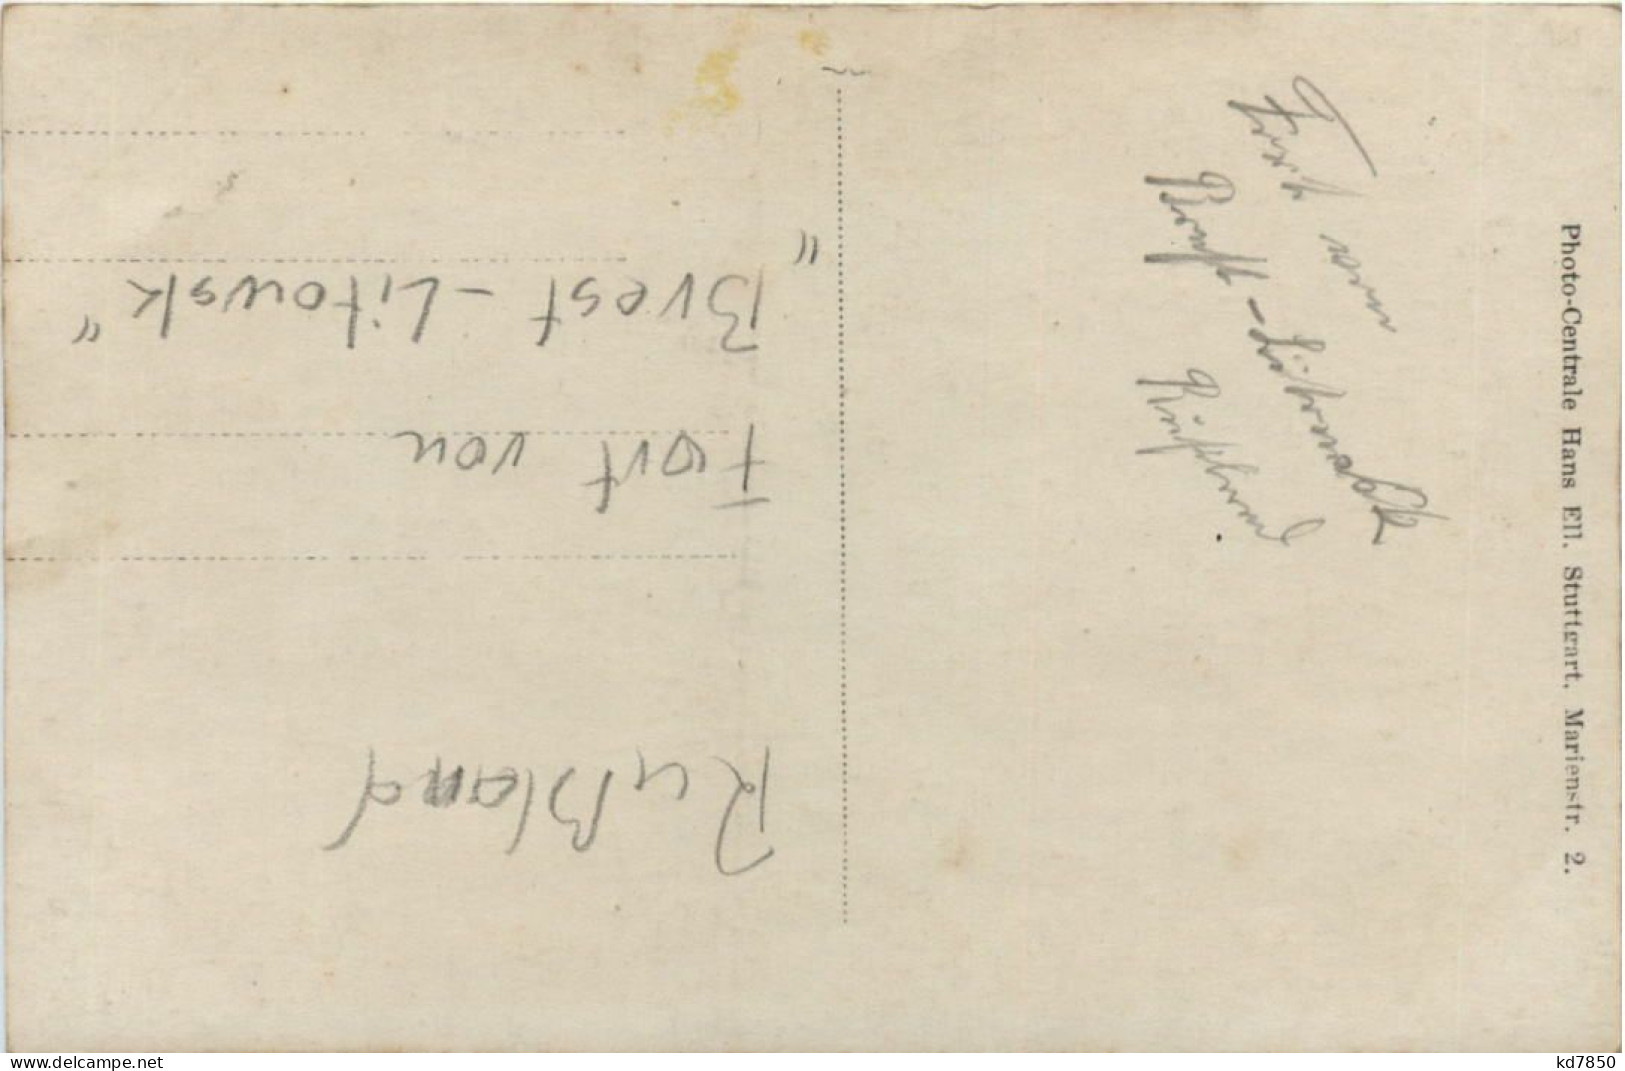 Fort von
Brest-Litowsk
Rußland
Photo-Centrale Hans Ell. Stuttgart, Marienstr. 2.
"Brest-Litowsk"
Fort von
Rußland
delcampe.net
kd7850